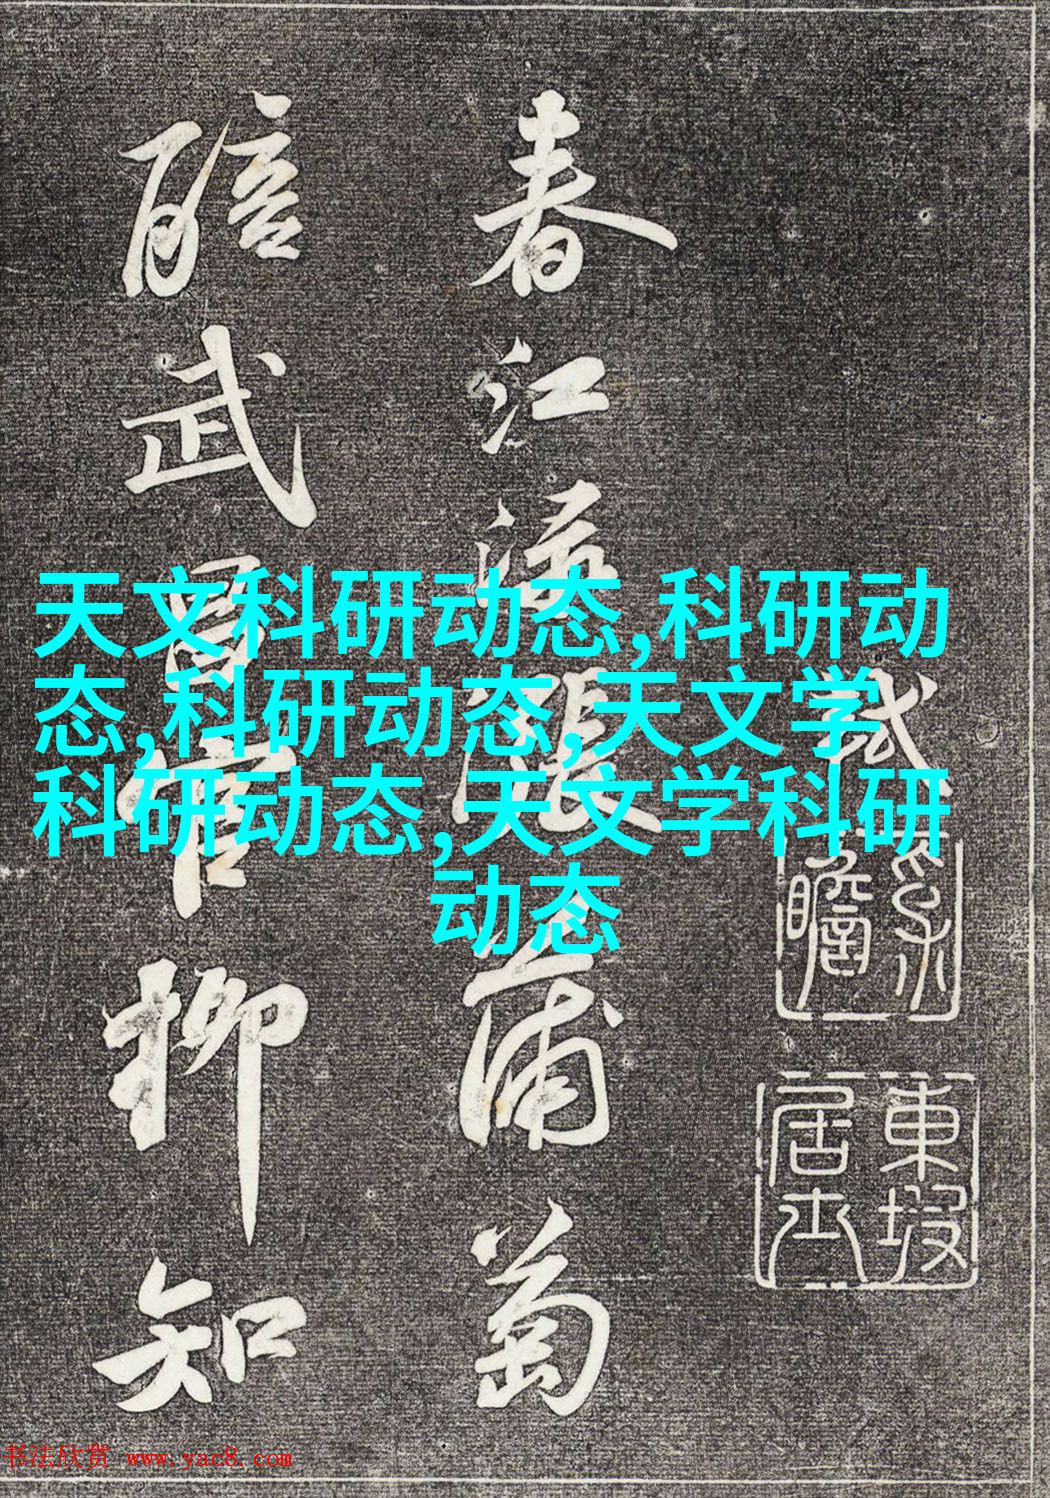 天文科研动态,科研动
态,科研动态,天文学
科研动态,天文学科研
动态
軾
東坡居士
春江淥漲蒲萄
醅武昌官柳知
书法欣赏 www.yac8.com